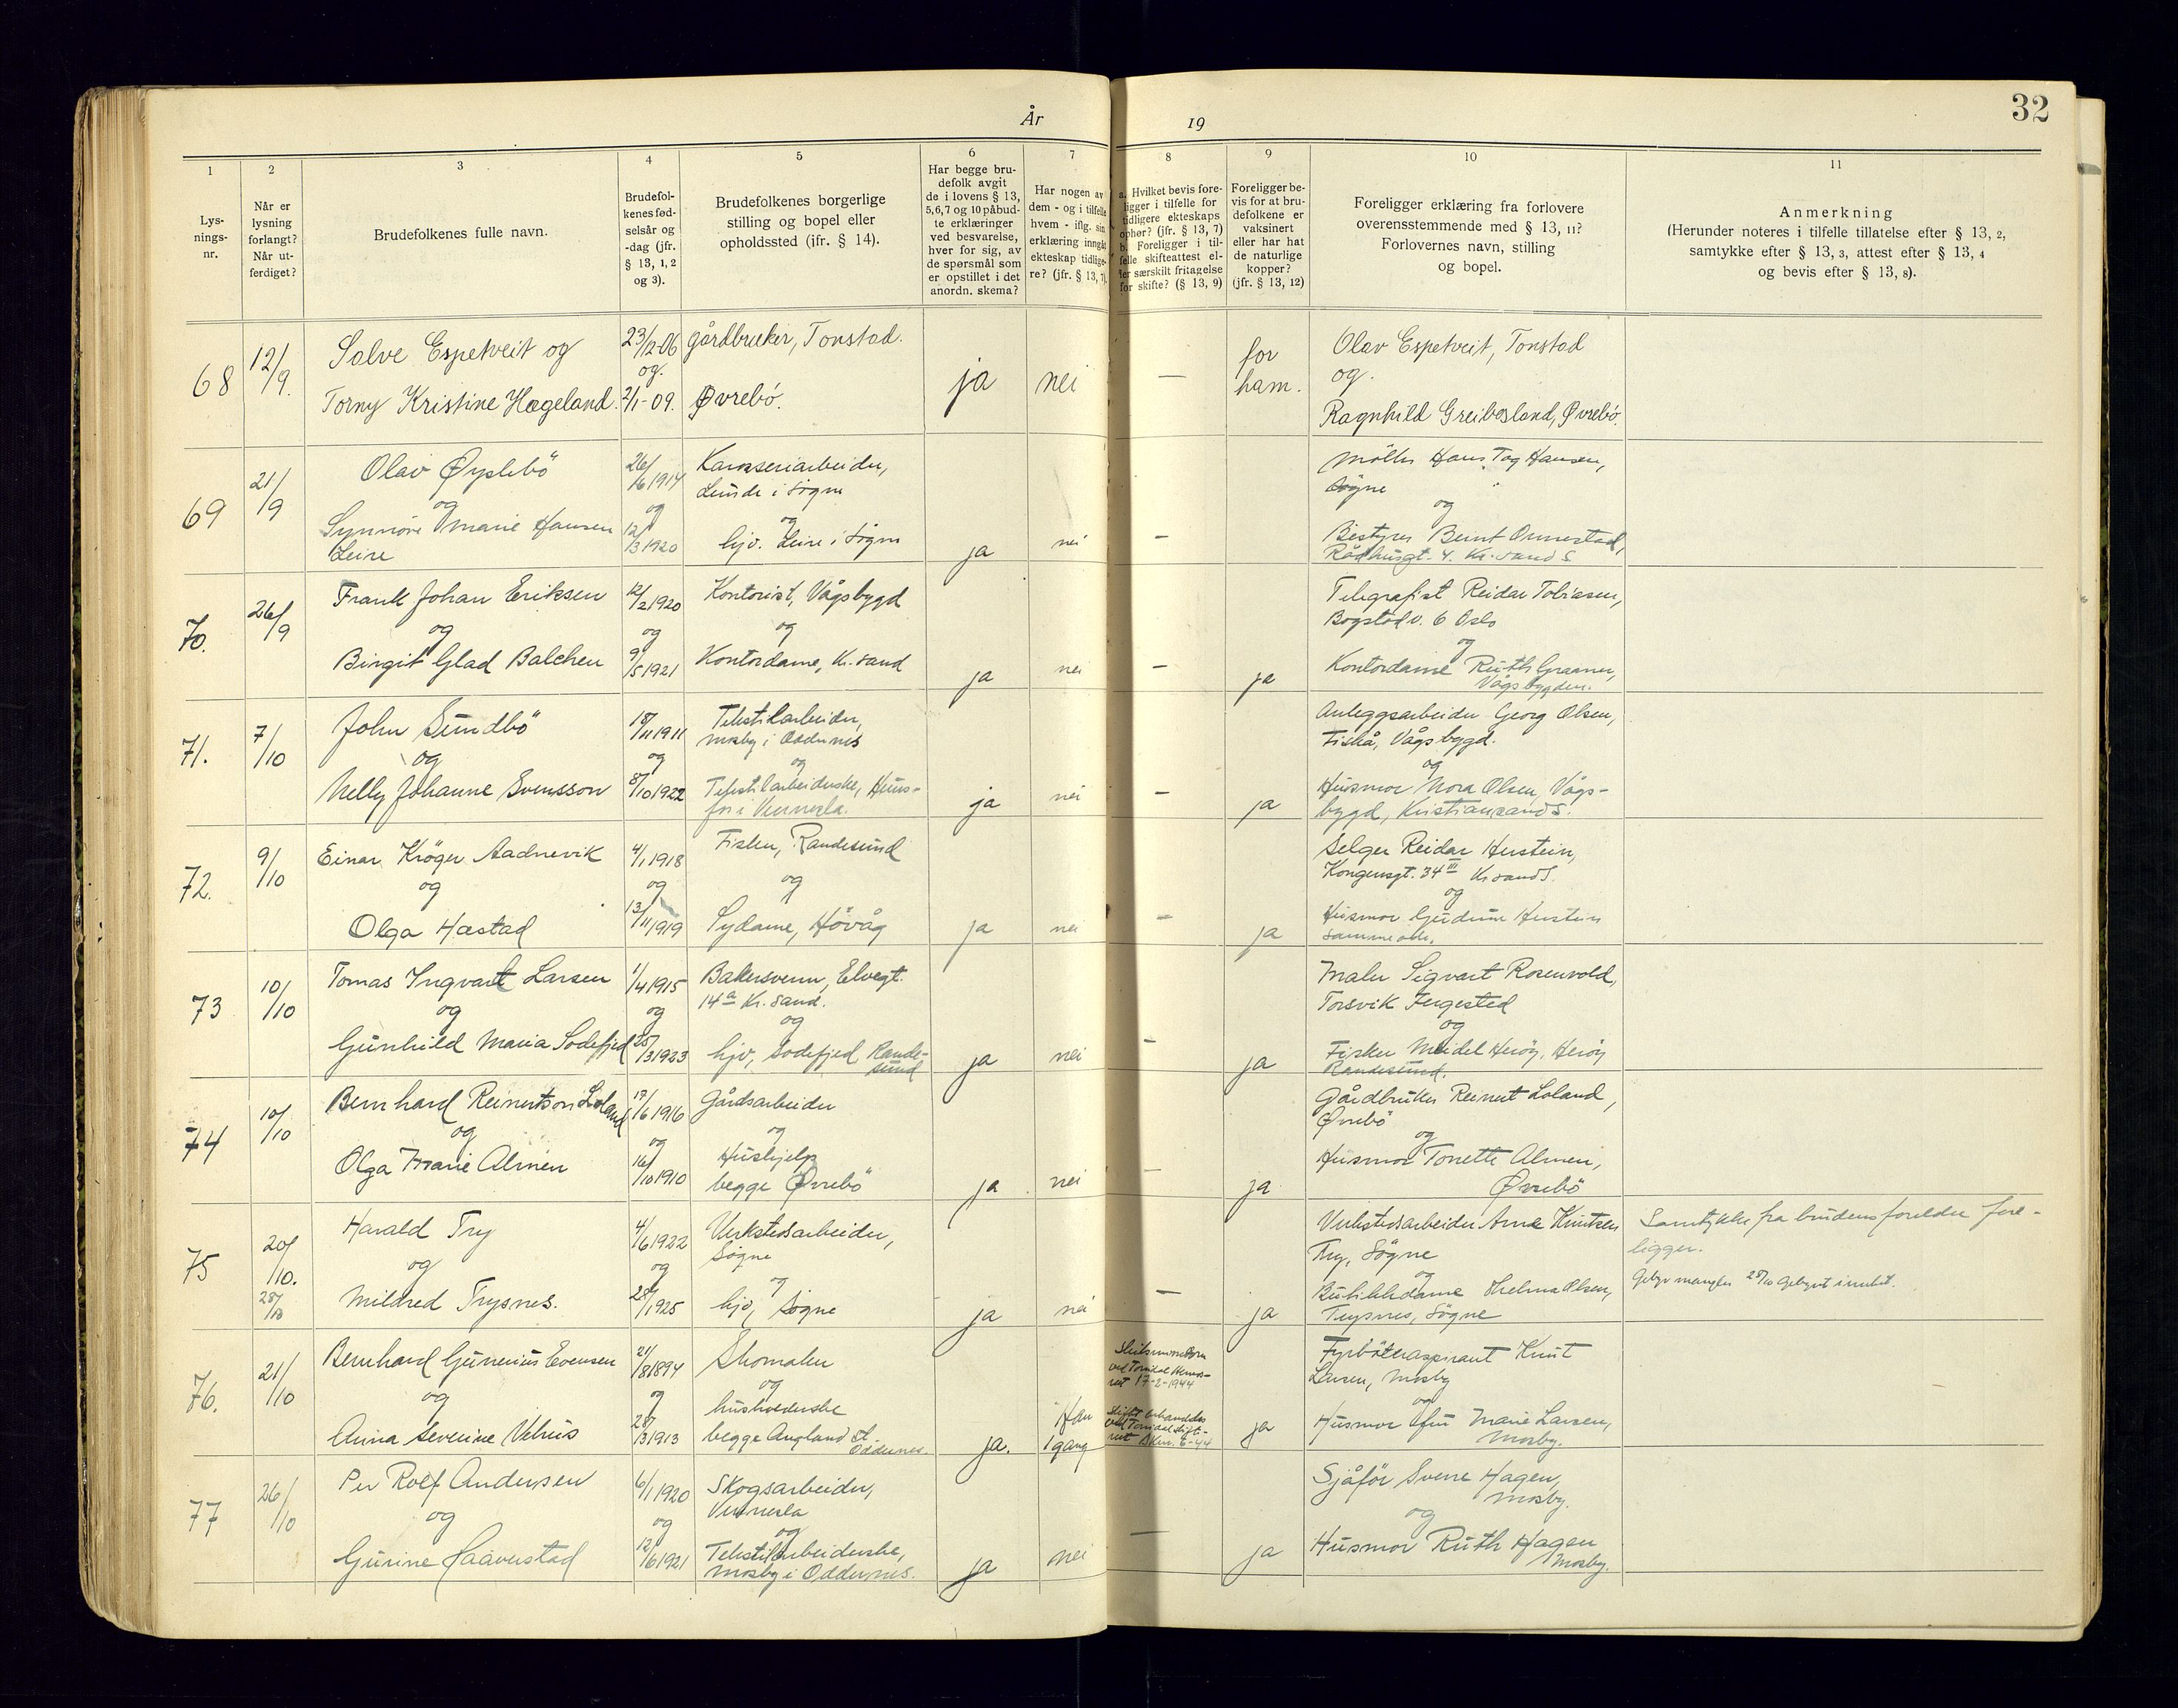 År
19
32
1
Lys-
nings-
nr.
2
Når er
lysning
forlangt?
Når ut-
ferdiget?
3
Brudefolkenes fulle navn.
4
Brudefol-
kenes fød-
selsår og
-dag (jfr.
§ 13, 1, 2
og 3).
5
Brudefolkenes borgerlige
stilling og bopel eller
opholdssted (jfr. § 14).
6
Har begge bru-
defolk avgit
de i lovens § 13,
5,6,7 og 10 påbud-
te erklæringer
ved besvarelse,
hver for sig, av
de spørsmål som
er opstillet i det
anordn. skema?
7
Har nogen av
dem - og i tilfelle
hvem - iflg. sin
erklæring inngått
ekteskap tidlige-
re? (jfr. § 13, 7)
8
a. Hvilket bevis fore-
ligger i tilfelle for
tidligere ekteskaps
ophør? (jfr. § 13, 7)
b. Foreligger i til-
felle skifteattest el-
ler særskilt fritagelse
for skifte? (§ 13, 9)
9
Foreligger be-
vis for at bru-
defolkene er
vaksinert
eller har hat
de naturlige
kopper?
(jfr. § 13, 12)
10
Foreligger erklæring fra forlovere
overensstemmende med § 13, 11?
Forlovernes navn, stilling
og bopel.
11
Anmerkning
(Herunder noteres i tilfelle tillatelse efter § 13, 2,
samtykke efter § 13, 3, attest efter § 13, 4
og bevis efter § 13, 8).
68
12/9.
Salve Espetveit og
Torny Kristine Hægeland.
23/12-06
og.
2/1-09.
gårdbruker, Tonstad.
Øvrebö.
ja
nei
—
for
ham.
Olav Espetveit, Tonstad
og.
Ragnhild Greibesland, Øvrebö.
69
21/9
Olav Øyslebö
og
Synnöve Marie Hansen
Leire
26/6 1914
og
12/3 1920
Karosseriarbeider,
Lunde i Sögne
og
hjv. Leire i Sögne
ja
nei
—
Möller Hans Tag Hansen,
Sögne
og
Bestyrer Bernt Ormestad,
Rådhusgt. 4. Kr.sand S
70.
26/9
Frank Johan Eriksen
og
Birgit Glad Balchen
12/2 1920
og
9/5 1921
Kontorist, Vågsbygd
og
Kontordame, Kr.sand
ja
nei
—
ja
Telegrafist Reidar Tobiasen,
Bogstadv. 6 Oslo
og
Kontordame Ruth Graaner,
Vågsbygden.
71.
7/10
John Sundbö
og
Nelly Johanne Svensson
18/11 1911
og
8/10 1922
Tekstilarbeider,
Mosby i Oddernes
og
Tekstilarbeiderske, Huns-
fos i Vennesla.
ja
nei
—
ja
Anleggsarbeider Georg Olsen,
Fiskå, Vågsbygd.
og
Husmor Nora Olsen, Vågs-
bygd, Kristiansand S.
72.
9/10
Einar Kröger Aadnevik
og
Olga Hæstad
4/1 1918
og
13/11 1919
Fisker, Randesund
og
Sydame, Hövåg
ja
nei
—
ja
Selger Reidar Herstein,
Kongensgt. 34 III Kr.sand S.
og
Husmor Gudrun Herstein
samme adr.
73
10/10
Tomas Ingvart Larsen
og
Gunhild Maria Sodefjed
1/4 1915
og
25/3 1923
Bakersvenn, Elvegt.
14a Kr.sand.
og
hjv, Sodefjed Rande-
sund
ja
nei
—
ja
Maler Sigvart Rosenvold,
Torsvik Fergested
og
Fisker Meidel Heröy, Heröy
Randesund.
74
10/10
Bernhard Reinertson Loland
og
Olga Marie Almen
17/6 1916
og
16/10 1910
Gårdsarbeider
og
Hushjelp
begge Øvrebö
ja
nei
—
ja
Gårdbruker Reinert Loland,
Øvrebö
og
Husmor Tonette Almen,
Øvrebö
75
20/10.
28/10
Harald Try
og
Mildred Trysnes.
4/6 1922
og
28/1 1925
Verkstedsarbeider,
Sögne
og
hjv, Sögne
ja
nei
—
ja
Verkstedsarbeider Arne Knutsen
Try, Sögne
og
Butikkdame Thelma Olsen,
Trysnes, Sögne
Samtykke fra brudens foreldre fore-
ligger.
Gebyr mangler 28/10 Gebyret innbet.
76.
21/10
Bernhard Gunerius Evensen
og
Anna Severine Vehus
24/8 1894
og
28/3 1913
Skomaker
og
husholderske
begge Augland st.
Oddernes.
ja.
Han
1 gang
17-2-1944
ja
Fyrböteraspirant Knut
Larsen, Mosby
og
Husmor fru Marie Larsen,
Mosby.
77
26/10
Per Rolf Andersen
og
Gurine Saaverstad
6/1 1920
og
12/6 1921
Skogsarbeider,
Vennesla
og
Tekstilarbeiderske,
Mosby i Oddernes.
ja
nei
—
ja
Sjåför Sverre Hagen,
Mosby.
og
Husmor Ruth Hagen
Mosby.